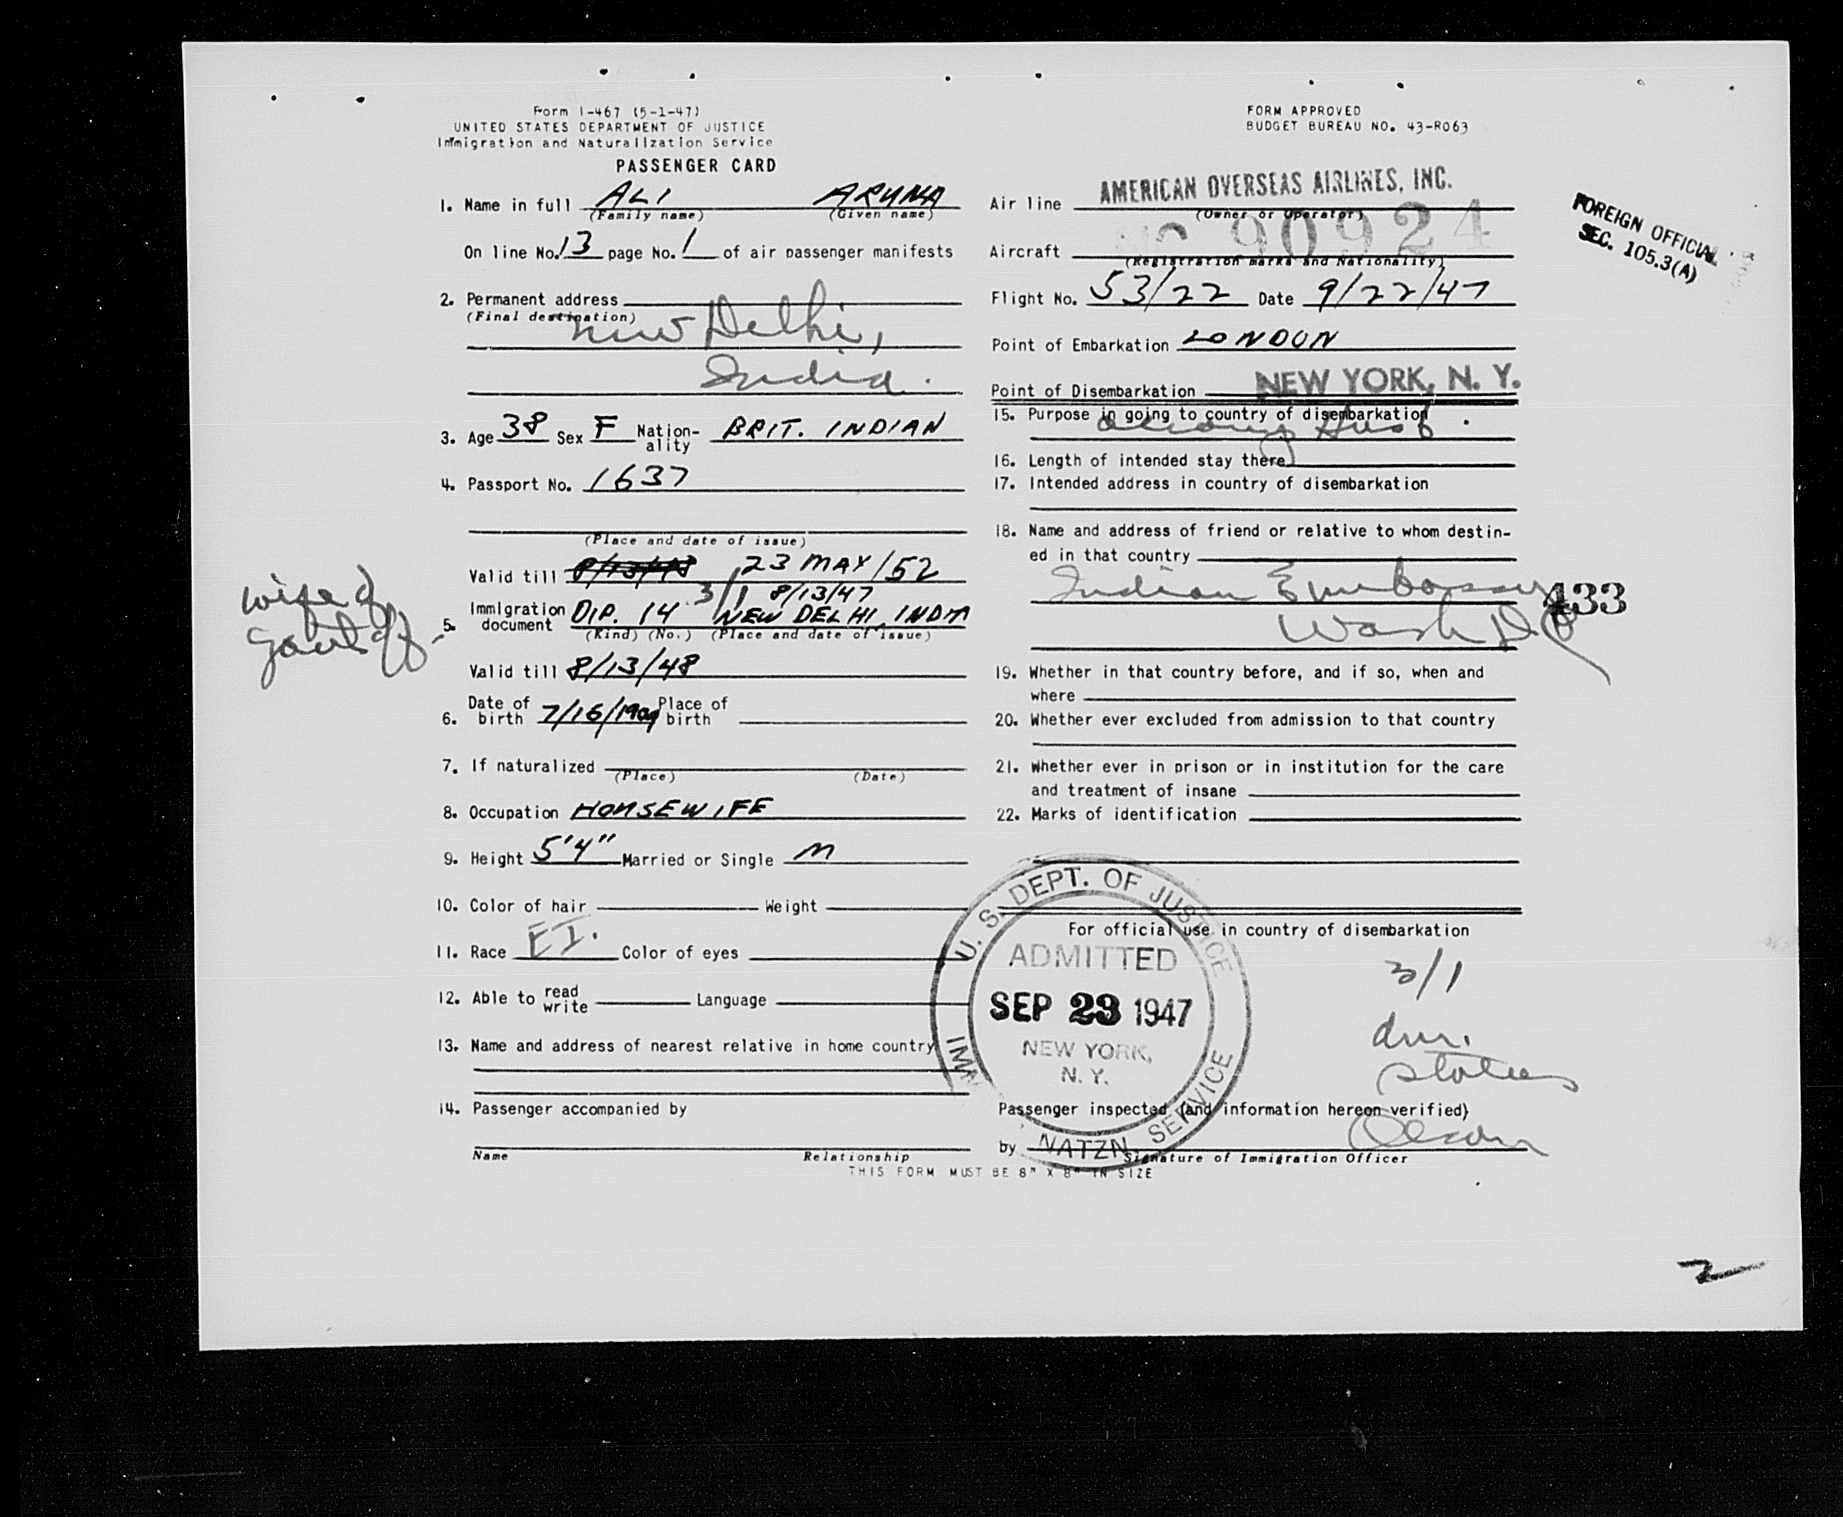 Form I-467 (5-1-47)
UNITED STATES DEPARTMENT OF JUSTICE
Immigration and Naturalization Service
PASSENGER CARD
FORM APPROVED
BUDGET BUREAU NO. 43-R063
1. Name in full ALI ARUNA
(Family name) (Given name)
On line No. 13 page No. 1 of air passenger manifests
2. Permanent address
(Final destination)
New Delhi,
India.
3. Age 38 Sex F Nation-ality BRIT. INDIAN
4. Passport No. 1637
(Place and date of issue)
Valid till 8/13/48 23 MAY/52
3/1 8/13/47
5. Immigration document DIP. 14 NEW DELHI, INDIA
(Kind) (No.) (Place and date of issue)
Valid till 8/13/48
6. Date of birth 7/16/1909 Place of birth
7. If naturalized
(Place) (Date)
8. Occupation HOUSEWIFE
9. Height 5'4" Married or Single M
10. Color of hair Weight
11. Race EI. Color of eyes
12. Able to read write Language
13. Name and address of nearest relative in home country
14. Passenger accompanied by
Name Relationship
wife of
Govt off-
Air line AMERICAN OVERSEAS AIRLINES, INC.
(Owner or Operator)
Aircraft NC 90924
(Registration marks and Nationality)
Flight No. 53/22 Date 9/22/47
Point of Embarkation LONDON
Point of Disembarkation NEW YORK, N. Y.
15. Purpose in going to country of disembarkation
accomp Husb.
16. Length of intended stay there
17. Intended address in country of disembarkation
18. Name and address of friend or relative to whom destin-
ed in that country
Indian Embassy
Wash D C
19. Whether in that country before, and if so, when and
where
20. Whether ever excluded from admission to that country
21. Whether ever in prison or in institution for the care
and treatment of insane
22. Marks of identification
For official use in country of disembarkation
3/1
dur.
status
Passenger inspected (and information hereon verified)
by Olson
Signature of Immigration Officer
THIS FORM MUST BE 8" X 8" IN SIZE
FOREIGN OFFICIAL
SEC. 105.3(A)
433
U. S. DEPT. OF JUSTICE
ADMITTED
SEP 23 1947
NEW YORK,
N. Y.
IMM NATZN SERVICE
2